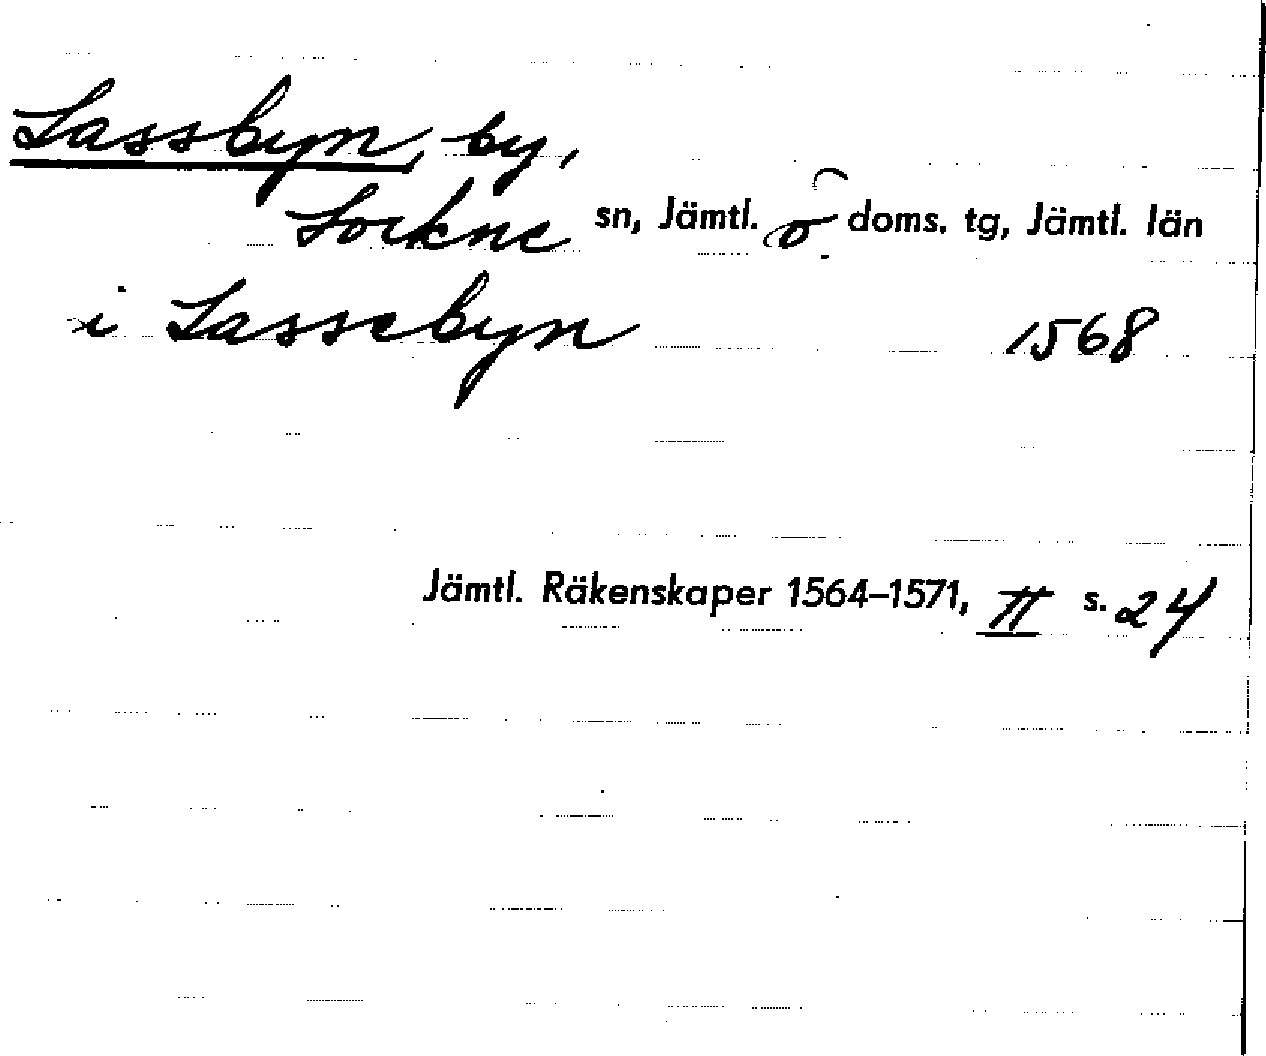 Lassbyn, by,
Lockne sn, Jämtl. ö doms. tg, Jämtl. län
i Lassebyn 1568
Jämtl. Räkenskaper 1564–1571, II s. 24